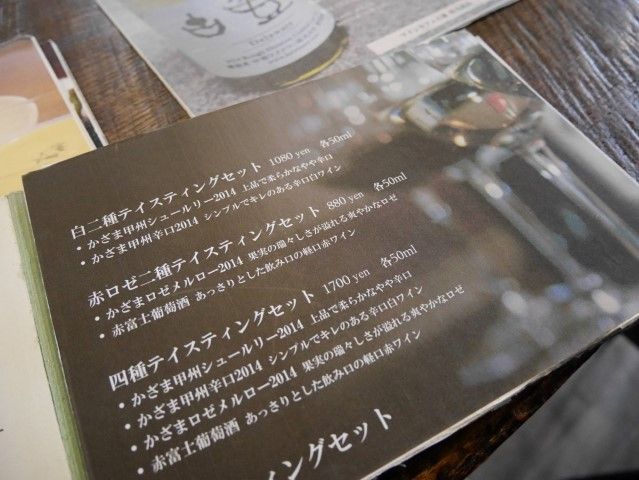 白二種テイスティングセット 1080 yen 各50ml
・かざま甲州シュールリー2014 上品で柔らかなやや辛口
・かざま甲州辛口2014 シンプルでキレのある辛口白ワイン
赤ロゼ二種テイスティングセット 880 yen 各50ml
・かざまロゼメルロー2014 果実の瑞々しさが溢れる爽やかなロゼ
・赤富士葡萄酒 あっさりとした飲み口の軽口赤ワイン
四種テイスティングセット 1700 yen 各50ml
・かざま甲州シュールリー2014 上品で柔らかなやや辛口
・かざま甲州辛口2014 シンプルでキレのある辛口白ワイン
・かざまロゼメルロー2014 果実の瑞々しさが溢れる爽やかなロゼ
・赤富士葡萄酒 あっさりとした飲み口の軽口赤ワイン
ィングセット